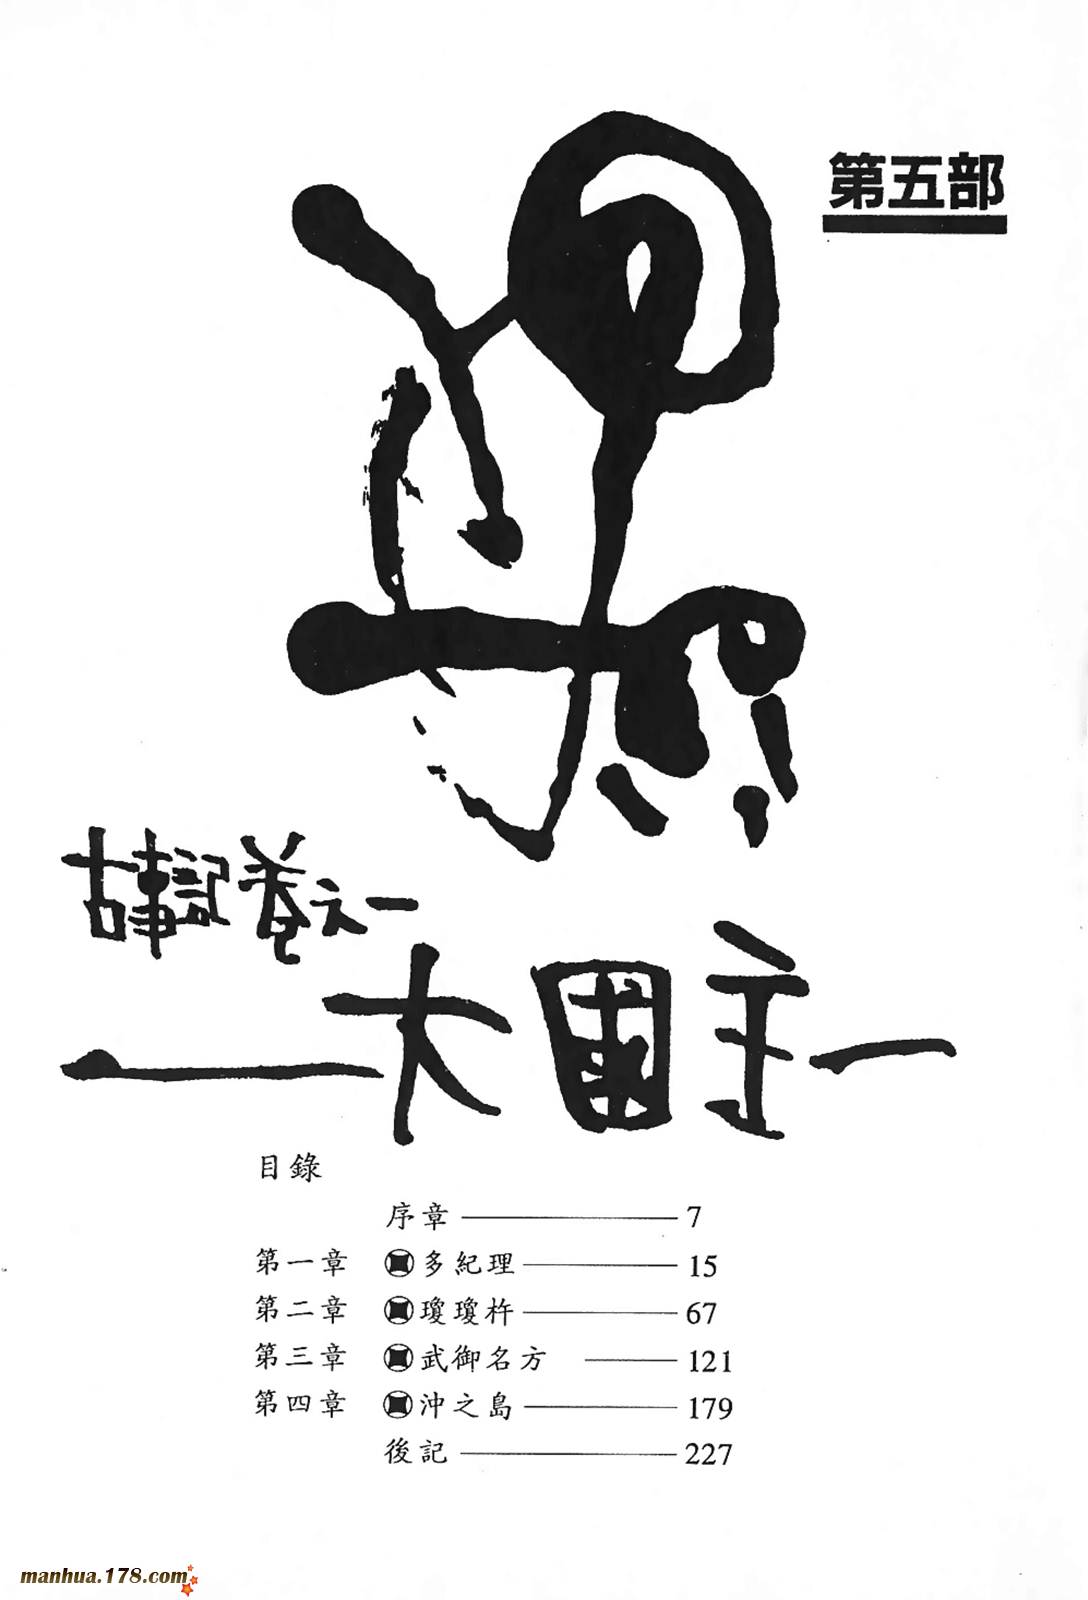 第五部
古事記卷之一
大國主
目錄
序章 7
第一章 多紀理 15
第二章 瓊瓊杵 67
第三章 武御名方 121
第四章 沖之島 179
後記 227
manhua.178.com